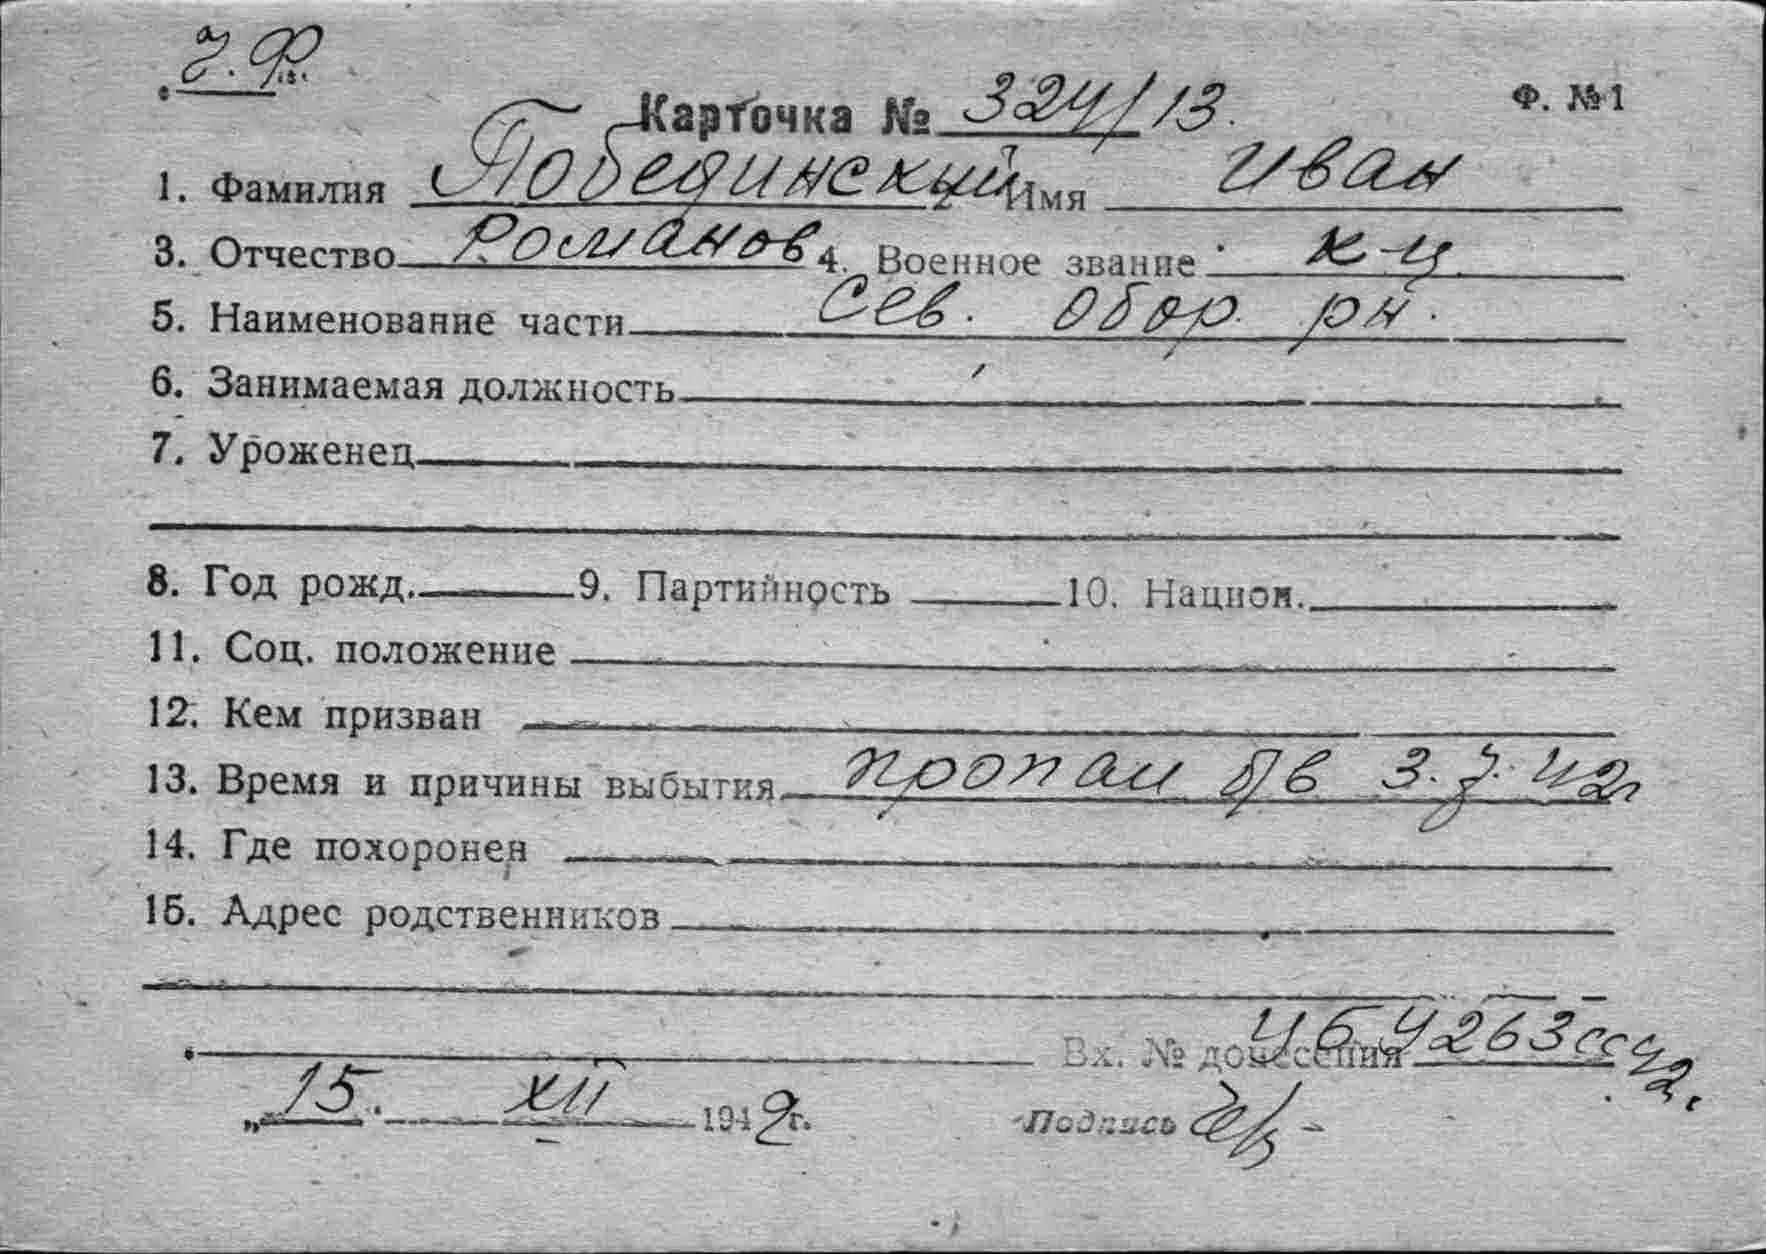 Ч.Ф.
Карточка № 324/13.
Ф. №1
1. Фамилия Побединский 2. Имя Иван
3. Отчество Романов 4. Военное звание к-ц
5. Наименование части Сев. обор. рн.
6. Занимаемая должность
7. Уроженец
8. Год рожд. 9. Партийность 10. Национ.
11. Соц. положение
12. Кем призван
13. Время и причины выбытия пропал б/в 3.7.42г
14. Где похоронен
15. Адрес родственников
Вх. № донесения Цб 4263сс42г.
„15. XII 1942г. Подпись